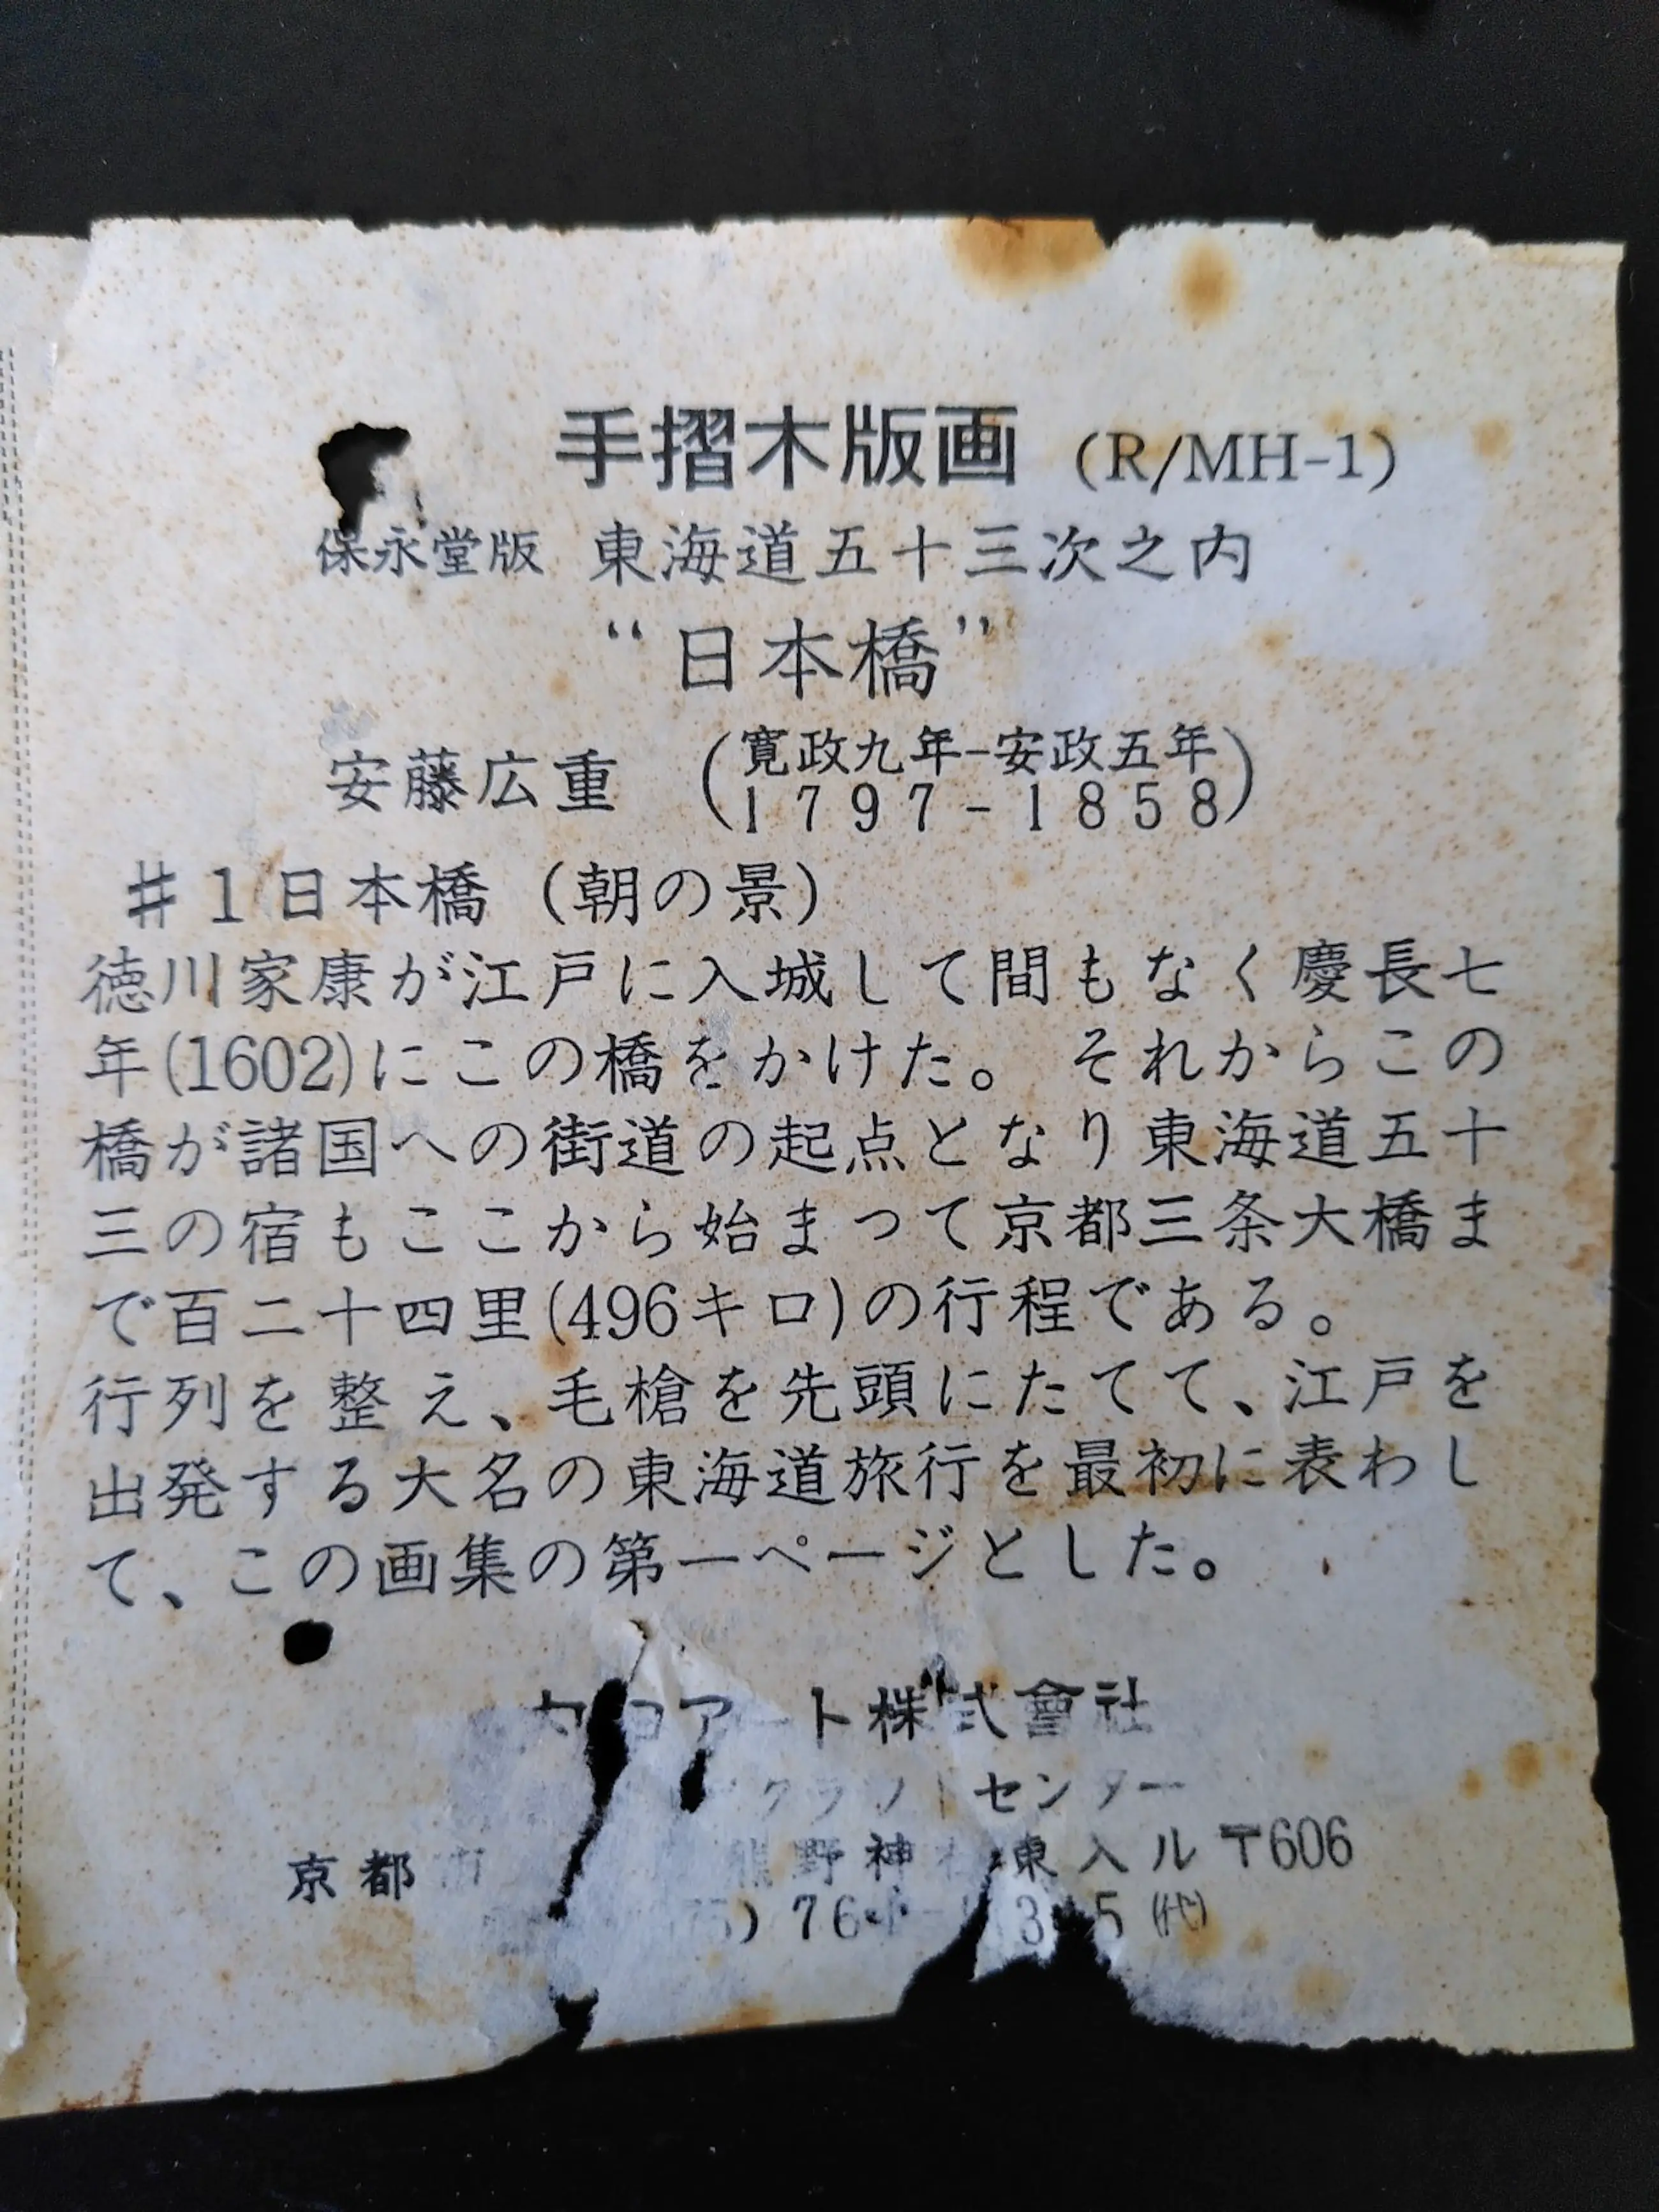 手摺木版画 (R/MH-1)
保永堂版 東海道五十三次之内
“日本橋”
安藤広重 (寛政九年-安政五年
1797-1858)
#1日本橋 (朝の景)
徳川家康が江戸に入城して間もなく慶長七
年(1602)にこの橋をかけた。 それからこの
橋が諸国への街道の起点となり東海道五十
三の宿もここから始まつて京都三条大橋ま
で百二十四里(496キロ)の行程である。
行列を整え、毛槍を先頭にたてて、江戸を
出発する大名の東海道旅行を最初に表わし
て、この画集の第一ページとした。
アート株式會社
クラフトセンター
京都市 熊野神社東入ル 〒606
(代)